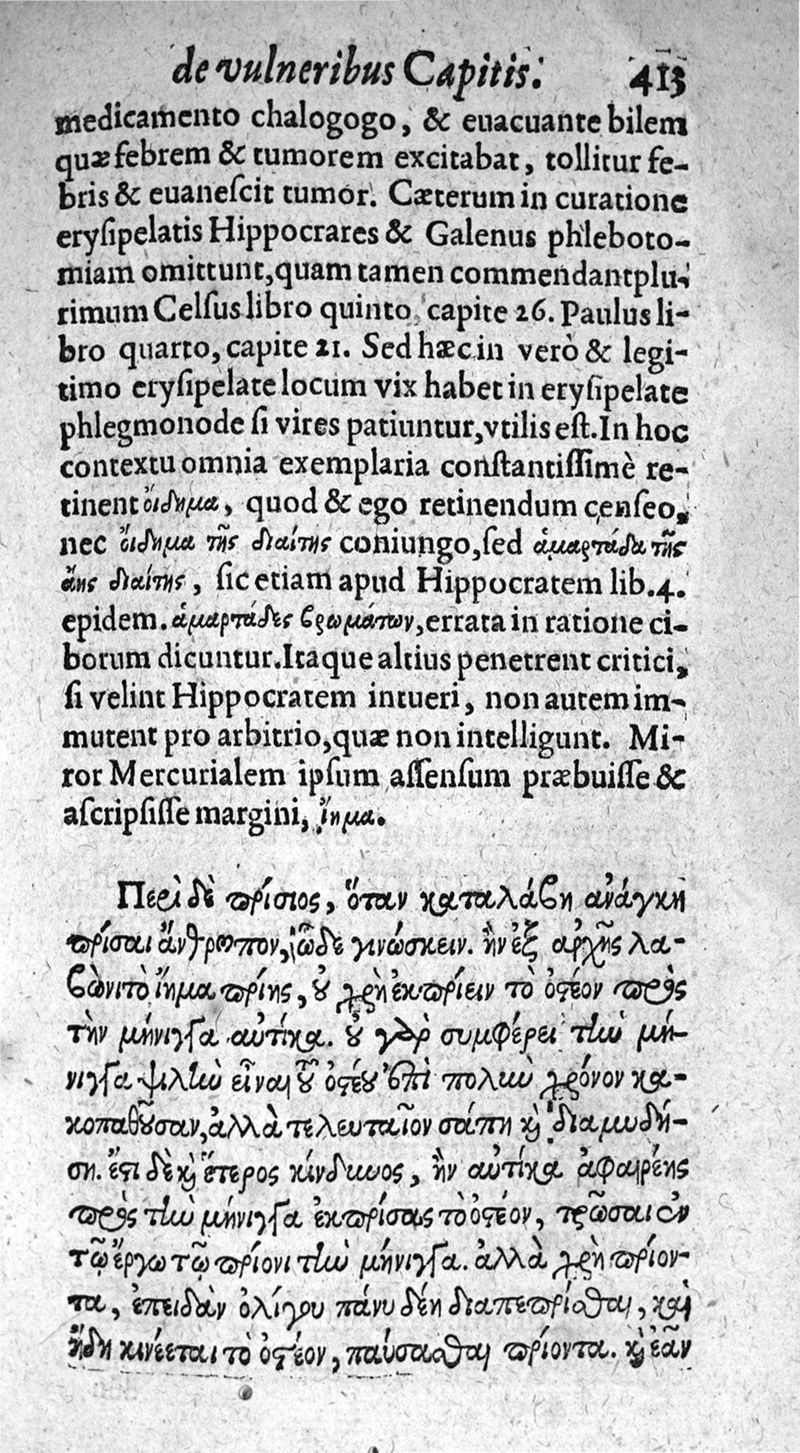 de vulneribus Capitis. 413
medicamento chalogogo, & euacuante bilem
quæ febrem & tumorem excitabat, tollitur fe-
bris & euaneſcit tumor. Cæterum in curatione
eryſipelatis Hippocrates & Galenus phleboto-
miam omittunt, quam tamen commendant plu-
rimum Celſus libro quinto capite 26. Paulus li-
bro quarto, capite 21. Sed hæc in verò & legi-
timo eryſipelate locum vix habet in eryſipelate
phlegmonode ſi vires patiuntur, vtilis eſt. In hoc
contextu omnia exemplaria conſtantiſſimè re-
tinent ὄιδημα, quod & ego retinendum cenſeo,
nec ὄιδημα τῆς διαίτης coniungo, ſed ἁμαρτάδα τῆς
διαίτης, ſic etiam apud Hippocratem lib. 4.
epidem. ἁμαρτάδες βρωμάτων, errata in ratione ci-
borum dicuntur. Itaque altius penetrent critici,
ſi velint Hippocratem intueri, non autem im-
mutent pro arbitrio, quæ non intelligunt. Mi-
ror Mercurialem ipſum aſſenſum præbuiſſe &
aſcripſiſſe margini, ἴημα.
Περὶ δὲ πρίσιος, ὅταν καταλάβη ἀνάγκη
πρίσαι ἄνθρωπον, ὧδε γινώσκειν. ἢν ἐξ ἀρχῆς λα-
βὼν τὸ ἴημα πρίης, οὐ χρὴ ἐκπρίειν τὸ ὀστέον πρὸς
τὴν μήνιγγα αὐτίκα. οὐ γὰρ συμφέρει τὴν μή-
νιγγα ψιλὴν εἶναι τοῦ ὀστέου ἐπὶ πολὺν χρόνον κα-
κοπαθοῦσαν, ἀλλὰ τελευταῖον σάπη καὶ διαμυδή-
ση. ἔστι δὲ καὶ ἕτερος κίνδυνος, ἢν αὐτίκα ἀφαιρέης
πρὸς τὴν μήνιγγα ἐκπρίσας τὸ ὀστέον, τρῶσαι ἐν
τῷ ἔργω τῷ πρίονι τὴν μήνιγγα. ἀλλὰ χρὴ πρίον-
τα, ἐπειδὰν ὀλίγου πάνυ δέη διαπεπρίσθαι, καὶ
ἤδη κινέεται τὸ ὀστέον, παύσασθαι πρίοντα. καὶ ἐᾶν